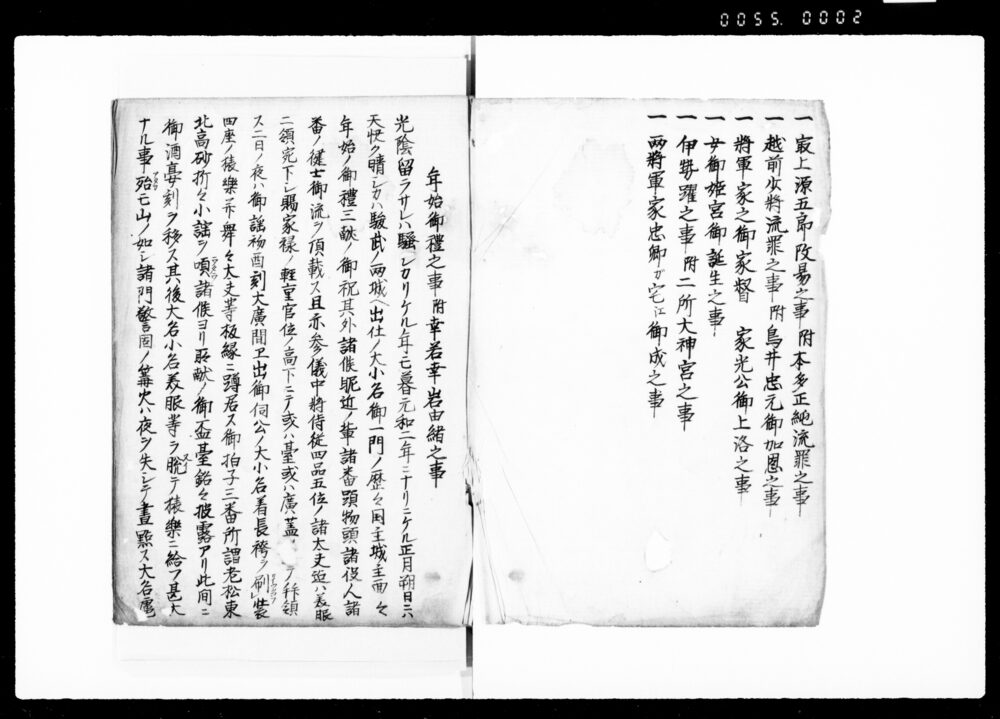 0055.0002
一 最上源五郎改易之事 附本多正純流罪之事
一 越前少将流罪之事 附鳥井忠元御加恩之事
一 将軍家之御家督 家光公御上洛之事
一 女御姫宮御誕生之事
一 伊勢躍之事 附二所大神宮之事
一 両将軍家忠卿カ宅江御成之事
年始御禮之事 附幸若幸岩由緒之事
光陰留ラサレハ騒シカリケル年モ暮元和二年ニナリニケル正月朔日ニハ
天快ク晴シカハ駿武ノ両城ヘ出仕ノ大小名御一門ノ歴々国主城主面々
年始ノ御禮三献ノ御祝其外諸候昵近ノ輩諸番頭物頭諸役人諸
番ノ健士御流ヲ頂戴ス且亦参儀中将侍従四品五位ノ諸太夫迠ハ美服
二領宛下シ賜家禄ノ軽重官位ノ高下ニテ或ハ臺或ハ廣蓋 ニテ拝領
ス二日ノ夜ハ御謡初酉刻大廣間エ出御伺公ノ大小名着長袴ヲ刷装
四座ノ猿樂并舞々太夫等板縁ニ蹲居ス御拍子三番所謂老松東
北高砂折々小謡ヲ頌諸候ヨリ所献ノ御盃臺銘々披露アリ此间ニ
御酒宴刻ヲ移ス其後大名小名美服等ヲ脱テ猿樂ニ給フ甚大
ナル事殆モ山ノ如シ諸門警固ノ篝火ハ夜ヲ失シテ晝ニ點ス大名電